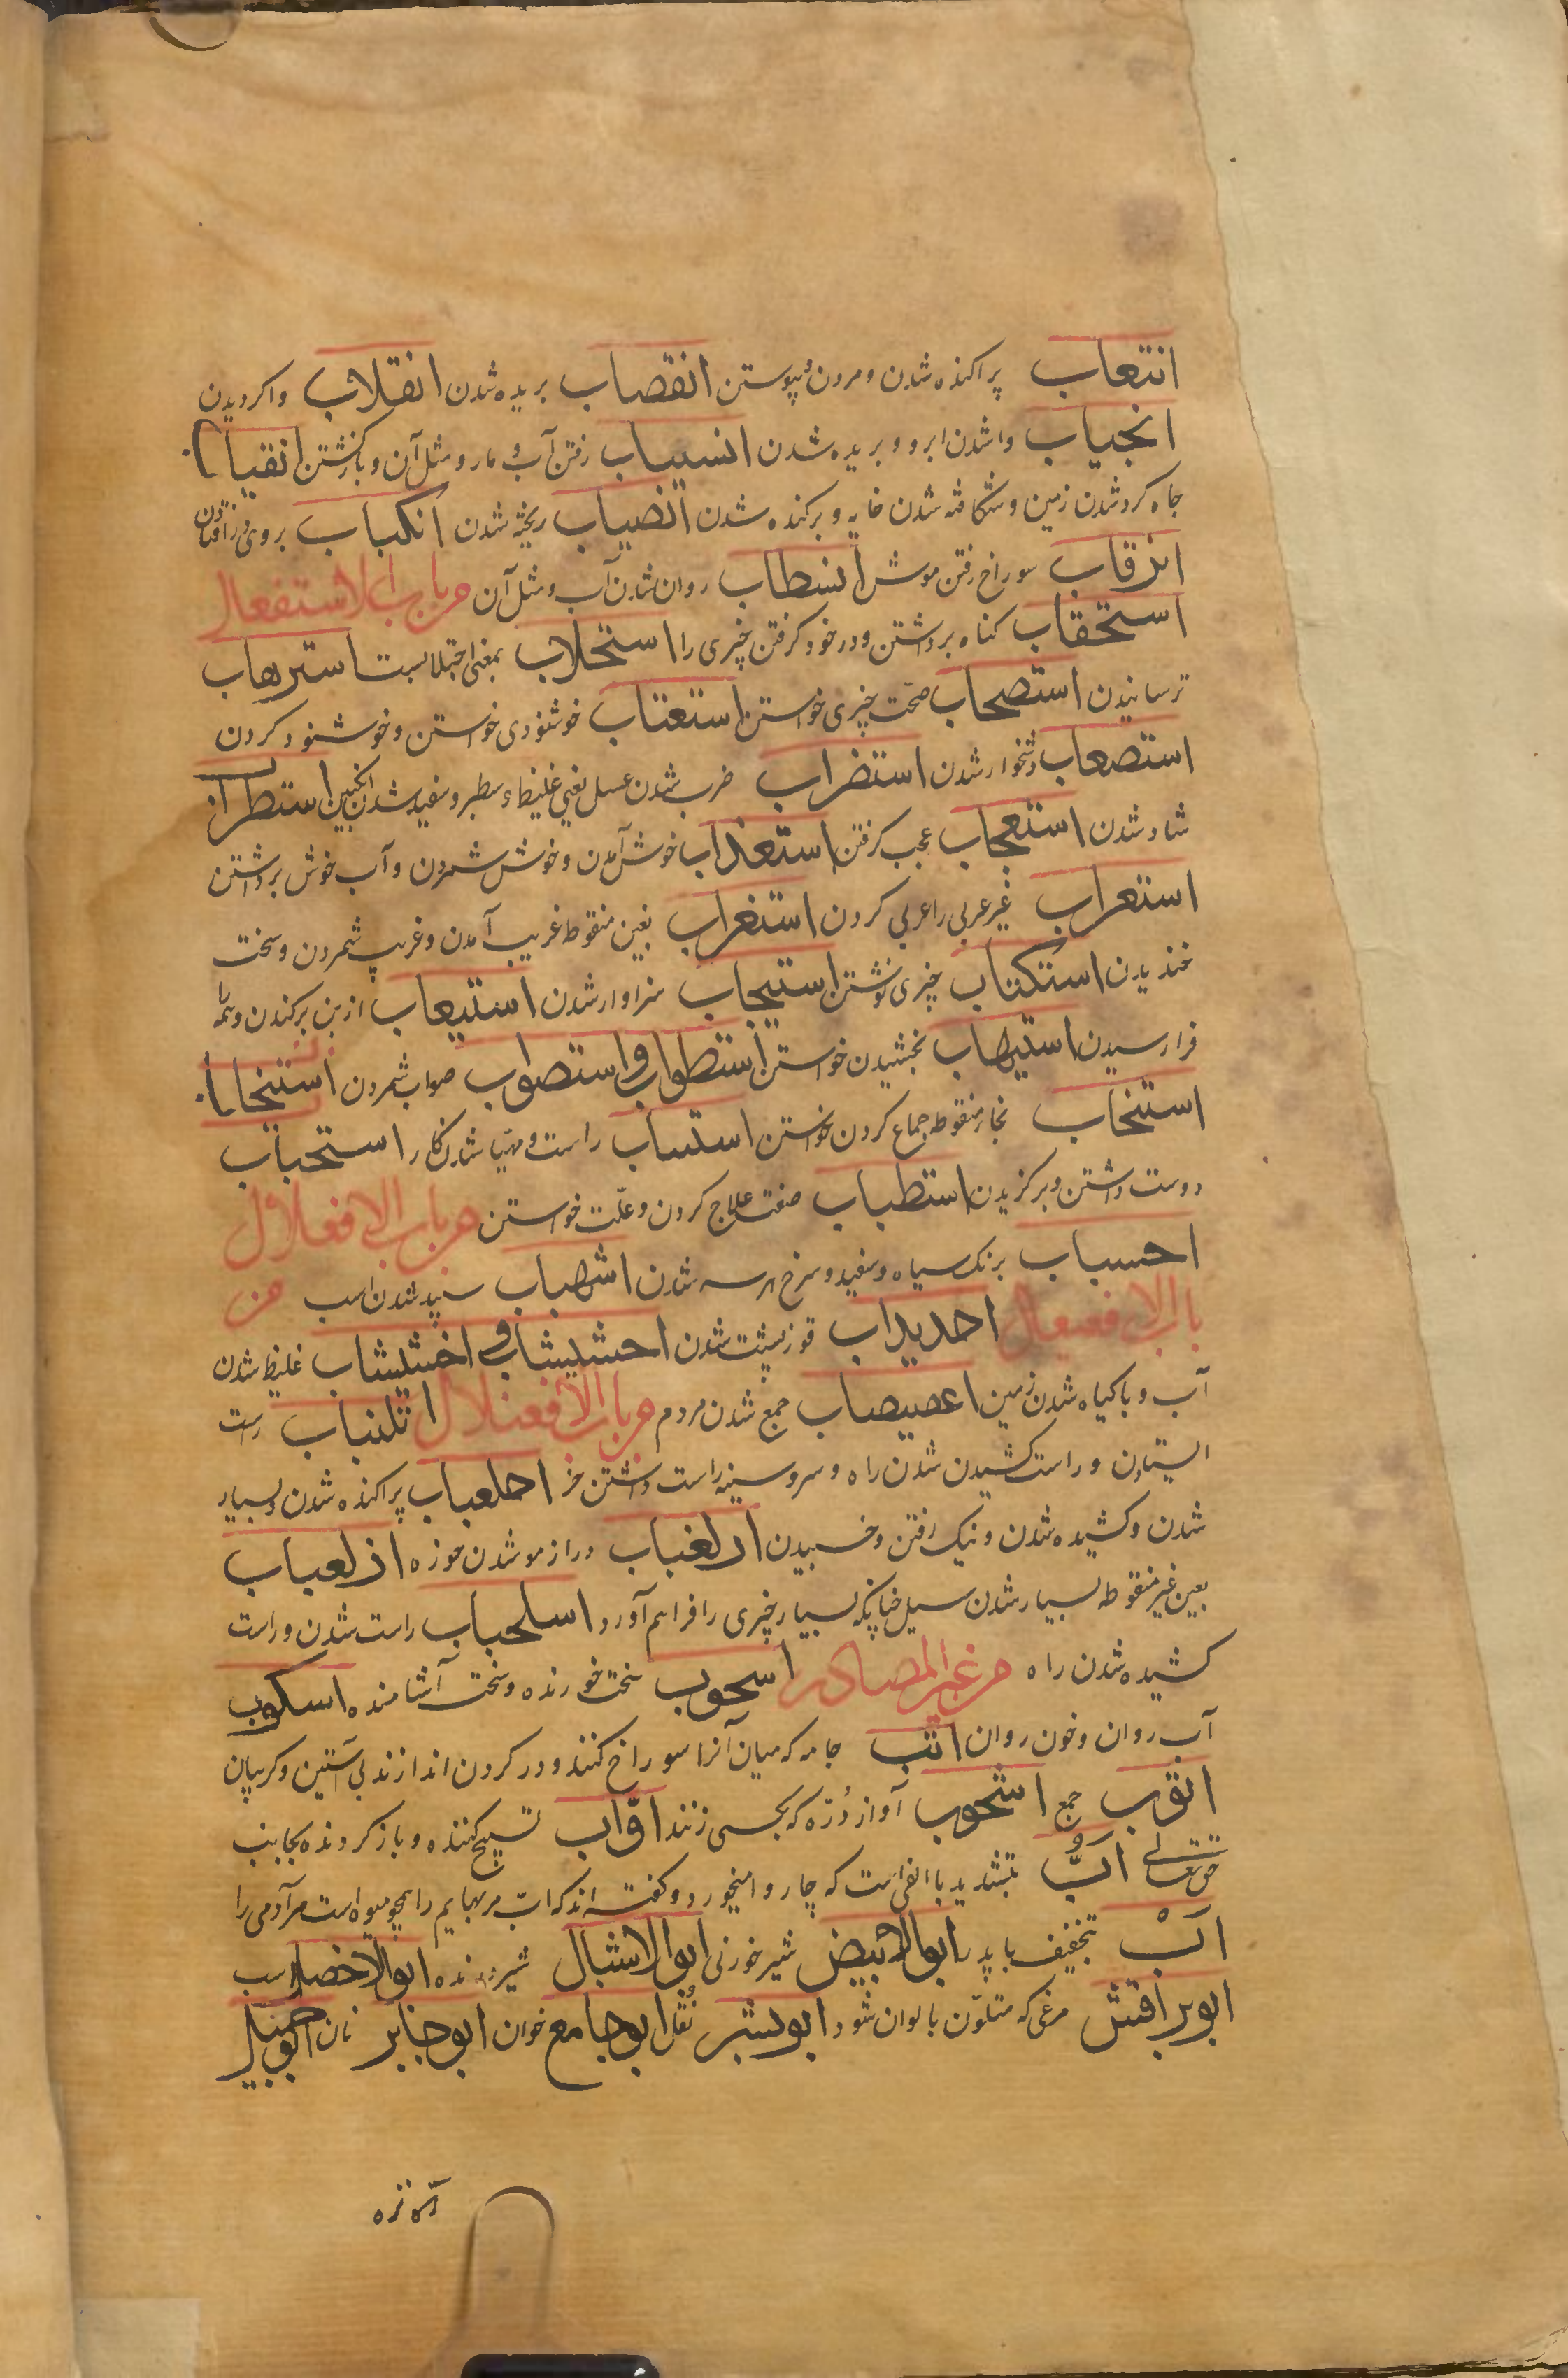 انتعاب پراکنده شدن و مردن و پیوستن انقصاب بریده شدن انقلاب واکردیدن
انجیاب واشدن ابر و بریده شدن انسیاب رفتن آب و مار و مثل آن و بازگشتن انقیاب
جاه کرد شدن زمین و شکافته شدن خایه و برکنده شدن انصباب ریخته شدن انکباب بروی در افتادن
انزقاب سوراخ رفتن موش انسطاب روان شدن آب و مثل آن من باب الاستفعال
استحقاب کناه برداشتن و در خود کرفتن چیزی را استحلاب بمعنی احتلابست استرهاب
ترسانیدن استصحاب صحت چیزی خواستن استعتاب خوشنودی خواستن و خوشنود کردن
استصعاب دشخوار شدن استضراب ضرب شدن عسل یعنی غلیظ و سطبر و سفید شدن انکبین استطراب
شاد شدن استعجاب عجب کرفتن استعذاب خوش آمدن و خوش شمردن و آب خوش برداشتن
استعراب غیر عربی را عربی کردن استغراب بغین منقوطه غریب آمدن و غریب شمردن و سخت
خندیدن استکتاب چیزی نوشتن استیجاب سزاوار شدن استیعاب از بن برکندن و همه
فرا رسیدن استیهاب بخشیدن خواستن استطواب و استصواب صواب شمردن استنخاب
استنخاب بخاء منقوطه جماع کردن خواستن استتباب راست و مهیا شدن کار استحباب
دوست داشتن و برکزیدن استطباب صنعت علاج کردن و علت خواستن من باب الافعلال
احسباب برنک سیاه و سفید و سرخ هر سه شدن اشهباب سپید شدن اسب من
باب الافعیعال احدیداب قوز پشت شدن احشیشاب و اخشیشاب غلیظ شدن
آب و با کیاه شدن زمین اعصیصاب جمع شدن مردم من باب الافعنلال اتلنباب راست
ایستادن و راست کشیدن شدن راه و سر و سینه راست داشتن خر اجلعباب پراکنده شدن و بسیار
شدن و کشیده شدن و نیک رفتن و خسبیدن ازلغباب دراز مو شدن موزه ازلعباب
بعین غیر منقوطه بسیار شدن سیل چنانکه بسیار چیزی را فراهم آورد اسلحباب راست شدن و راست
کشیده شدن راه من غیر المصادر اسحوب سخت خورنده و سخت آشامنده اسکوب
آب روان و خون روان اتب جامه که میان آنرا سوراخ کنند و در کردن اندازند بی آستین و کریبان
اتوب جمع اشحوب آواز دُرّه که بکسی زنند اوّاب تسبیح کننده و باز کردنده بجانب
حق تعالی ابٌّ بتشدید با الفی است که چاروا میخورد و کفته اند که ابّ مر بهایم را همچو میوه است مر آدمی را
ابْ بتخفیف با پدر ابو الابیض شیر خوردنی ابو الاشبال شیر درنده ابو الاخضر اسب
ابو براقش مرغی که متلوّن بالوان شود ابو بشر نُقل ابو جامع خوان ابو جابر نان ابو جمیل